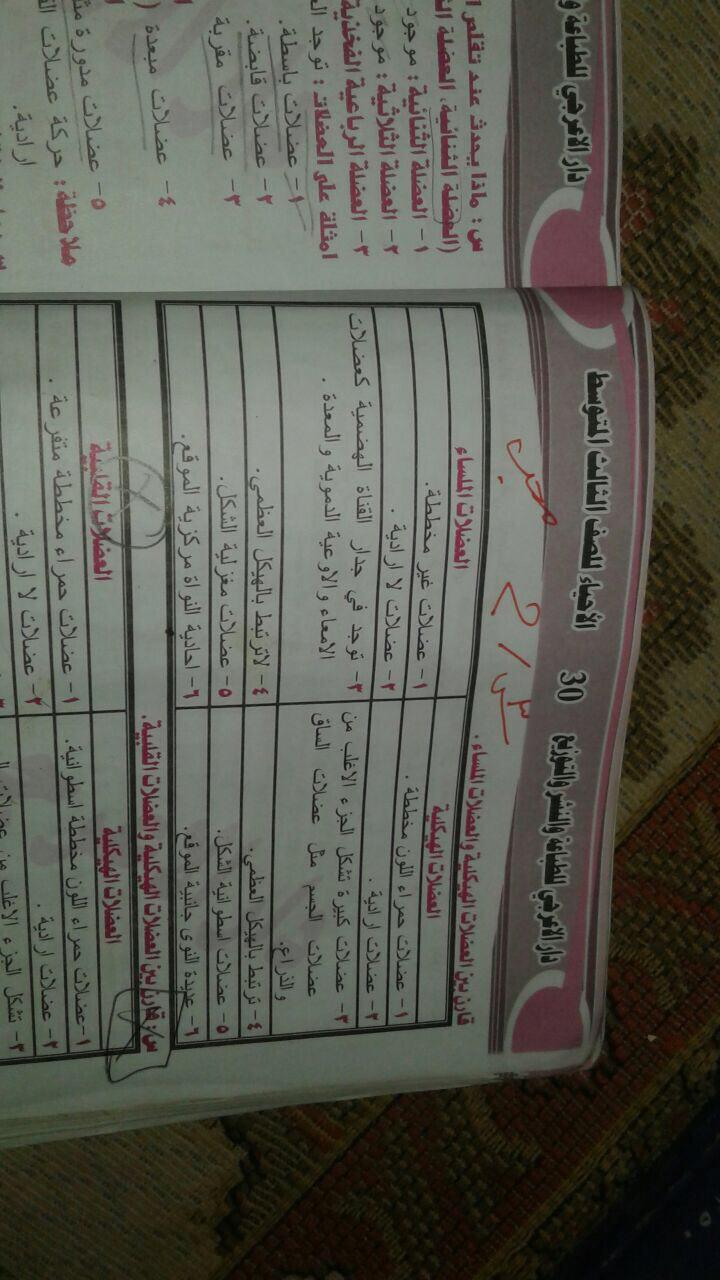 دار الاعرجي للطباعة والنشر والتوزيع
30
الأحياء للصف الثالث المتوسط
س/ 2
قارن بين العضلات الهيكلية والعضلات الملساء .
العضلات الهيكلية
العضلات الملساء
١- عضلات حمراء اللون مخططة .
١- عضلات غير مخططة.
٢- عضلات ارادية .
٢- عضلات لا ارادية .
٣- عضلات كبيرة تشكل الجزء الاغلب من
عضلات الجسم مثل عضلات الساق
والذراع.
٣- توجد في جدار القناة الهضمية كعضلات
الامعاء والاوعية الدموية والمعدة .
٤- ترتبط بالهيكل العظمي.
٤- لاترتبط بالهيكل العظمي.
٥- عضلات اسطوانية الشكل.
٥- عضلات مغزلية الشكل.
٦- عديدة النوى جانبية الموقع.
٦- احادية النواة مركزية الموقع.
س/ قارن بين العضلات الهيكلية والعضلات القلبية.
العضلات الهيكلية
العضلات القلبية
١-عضلات حمراء اللون مخططة اسطوانية.
١- عضلات حمراء مخططة متفرعة .
٢- عضلات ارادية .
٢- عضلات لا ارادية .
٣- تشكل الجزء الاغلب من عضلات
دار الاعرجي للطباعة و
س: ماذا يحدث عند تقلص
(العضلة الثنائية، العضلة
١- العضلة الثنائية: موجود
٢- العضلة الثلاثية: موجود
٣- العضلة الرباعية الفخذية
امثلة على العضلات: توجد
١- عضلات باسطة.
٢- عضلات قابضة.
٣- عضلات مقربة
٤- عضلات مبعدة (
٥- عضلات مدورة
ملاحظة: حركة عضلات
ارادية.